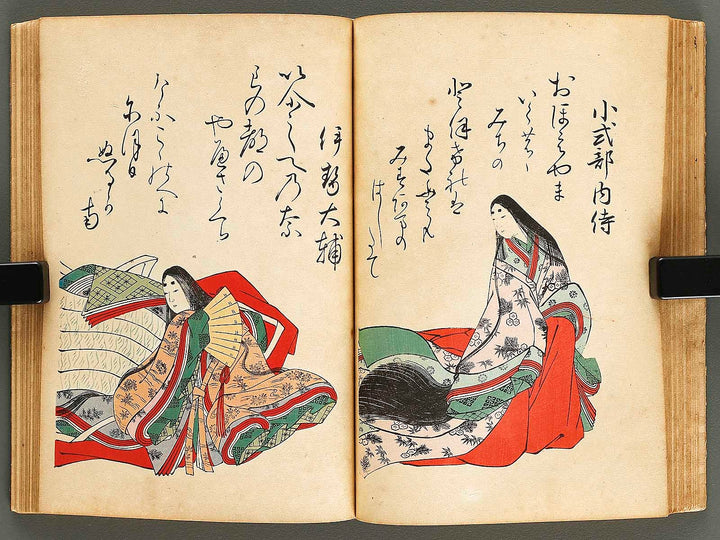 小式部内侍
おほえやま
いくのゝ
みちの
またふみも
みすあまの
はしたて
伊勢大輔
いにしへ乃奈
らの都の
や重さくら
けふこゝのへに
にほひ
ぬるか
南